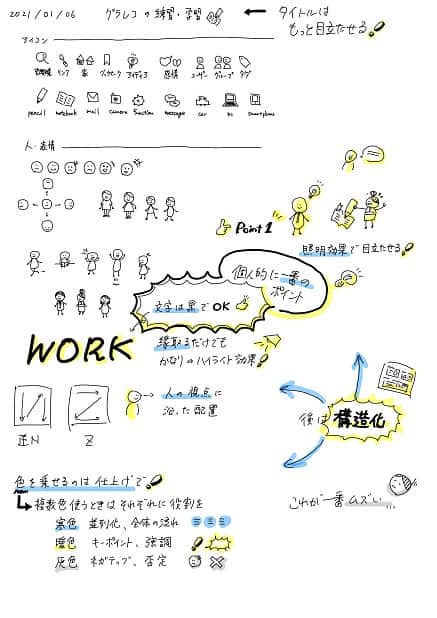 2021/01/06 グラレコの練習・学習
← タイトルは
もっと目立たせる
アイコン
リンク 家 ブックマーク アイディア 感情 ユーザー グループ タグ
pencil notebook mail camera function message car PC smartphone
人・表情
Point 1
照明効果で目立たせる
個人的に一番の
ポイント
文字は黒でOK
WORK
縁取るだけでも
かなりのハイライト効果
逆N
Z
人の視点に
沿った配置
後は 構造化
色を乗せるのは仕上げで
複数色使うときはそれぞれに役割を
寒色 並列化、全体の流れ
暖色 キーポイント、強調
灰色 ネガティブ、否定
これが一番ムズい...